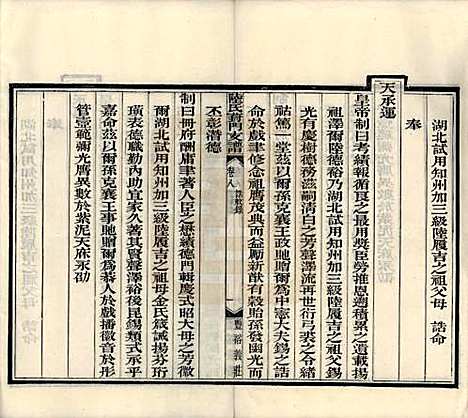 湖北試用知州加三級陸履吉之祖父母 誥命
奉
天承運
皇帝制曰考績報循良之最用獎臣勞推恩溯積累之遺載揚
祖澤爾陸德裕乃湖北試用知州加三級陸履吉之祖父錫
光有慶樹德務滋嗣清白之芳聲澤流再世衍弓裘之令緒
祜篤一堂茲以爾孫克襄王政貤贈爾為中憲大夫錫之誥
命於戲聿修念祖膺茂典而益勵新猷有穀貽孫發幽光而
丕彰潛德
陸氏葑門支譜 卷八 誥敕錄 一 豐裕義莊
制曰冊府酬庸聿著人臣之懋績德門輯慶式昭大母之芳聲
爾湖北試用知州加三級陸履吉之祖母金氏箴誡揚芬珩
璜表德職勤內助宜家久著其賢聲澤裕後昆錫類式承乎
嘉命茲以爾孫克襄王事貤贈爾為恭人於戲播徽音於彤
管壼範彌光膺異數於紫泥天庥永劭